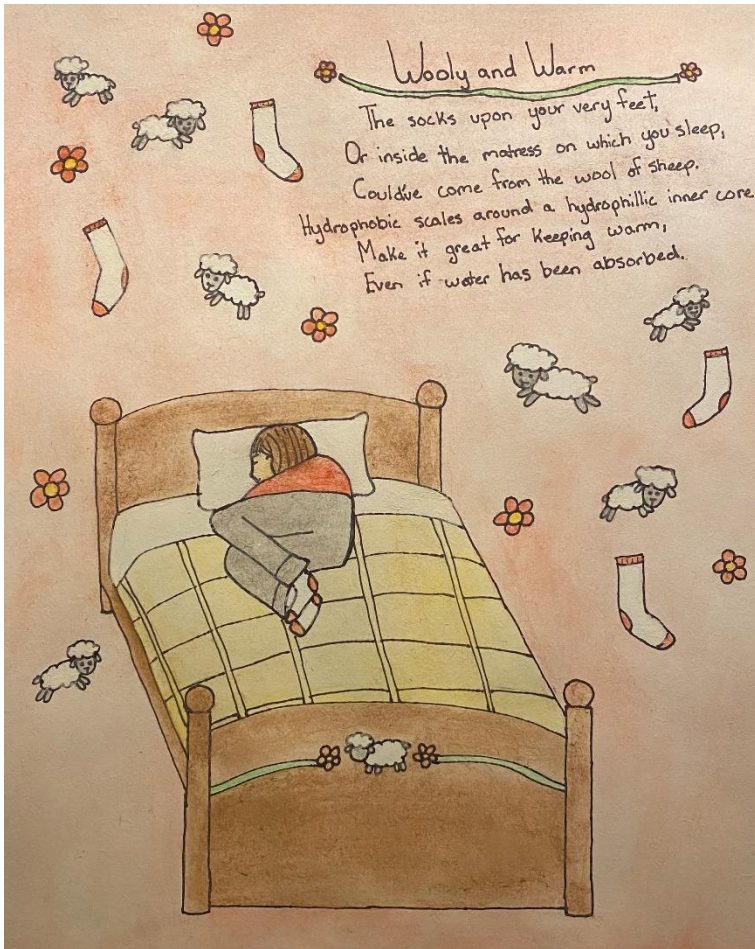 Wooly and Warm
The socks upon your very feet,
Or inside the matress on which you sleep,
Could've come from the wool of sheep.
Hydrophobic scales around a hydrophillic inner core
Make it great for keeping warm,
Even if water has been absorbed.